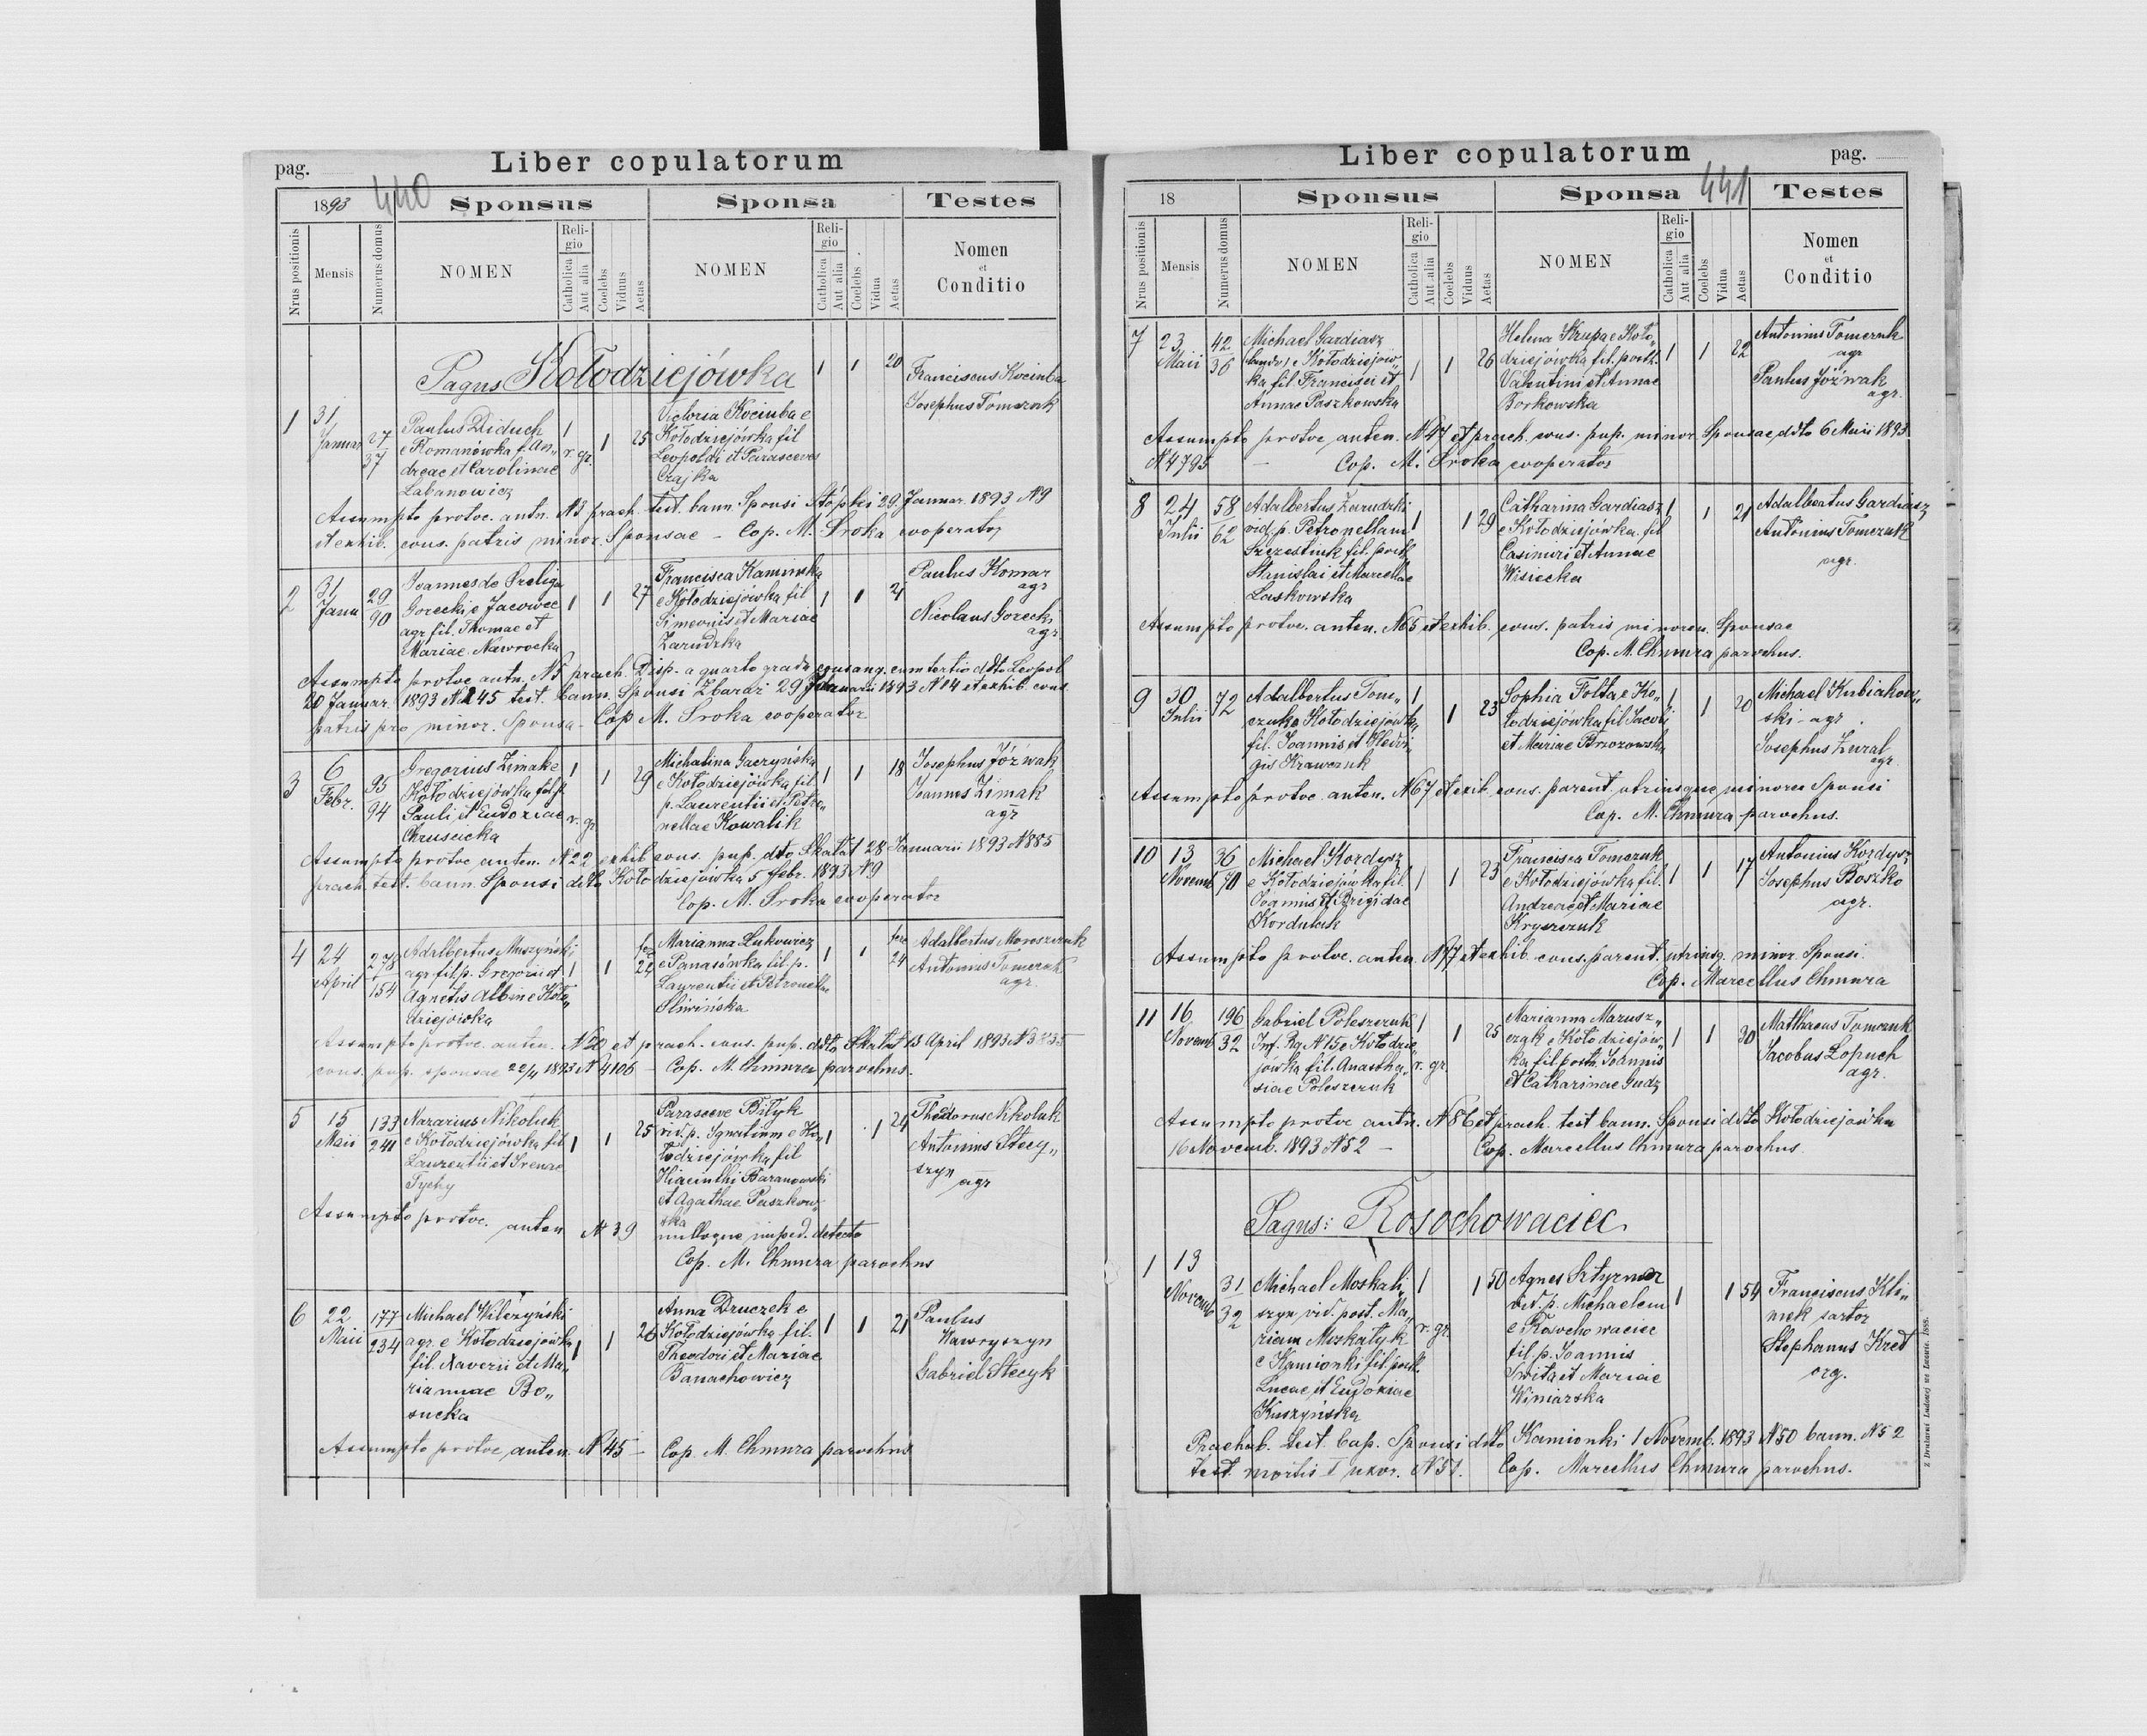 pag.
Liber copulatorum
1893
440
Sponsus
Sponsa
Testes
Nrus positionis
Mensis
Numerus domus
NOMEN
Religio
Catholica
Aut alia
Coelebs
Viduus
Aetas
NOMEN
Religio
Catholica
Aut alia
Coelebs
Vidua
Aetas
Nomen
et
Conditio
Pagus Kołodziejówka
1 1 20
Franciscus Kociuba
Josephus Tomczuk
1
31
Januar
27
37
Paulus Diduch
e Romanówka f. An„
dreae et Carolinae
Labanowicz
1
r. gr.
1
25
Victoria Kociuba e
Kołodziejówka fil
Leopoldi et Parasceves
Czajka
Assumpto protoc. antn. N3 prach. test. bann. Sponsi Stópki 29. Januar. 1893 N9
et exhib. cons. patris minor. Sponsae - Cop. M. Sroka cooperator
2
31
Janu
29
90
Joannes de Preliga
Gorecki e Jacowce
agr fil. Thomae et
Mariae Nawrocka
1 1 27
Francisca Kaminska
e Kołodziejówka fil
Simeonis et Mariae
Zarudzka
1 1 21
Paulus Komar
agr
Nicolaus Gorecki
agr
Assumpto protoc antn. N5 prach. Disp. a quarto gradu consang. cum tertio ddto Leopol
20 Januar. 1893 N245 test. bann. Sponsi Zbaraż 29 Januarii 1893 N14 et exhib. cons.
patris pro minor. Sponsa - Cop M. Sroka cooperator
3
6
Febr.
95
94
Gregorius Zimak e
Kołodziejówka fil p
Pauli et Eudoxiae
Chruscicka
1
r. gr.
1 29
Michalina Gaczyńska
e Kołodziejówka fil
p. Laurentii et Petro„
nellae Kowalik
1 1 18
Josephus Jóźwak
Joannes Zimak
agr
Assumpto protoc anten. N22 exhib cons. pup. dto Skałat 28 Januarii 1893 N885
prach test. bann. Sponsi ddto Kołodziejówka 5 febr. 1893 N9
Cop. M. Sroka cooperator
4
24
April
278
154
Adalbertus Muszyński
agr fil p. Gregorii et
Agnetis Albin e Koło„
dziejówka
1 1
fere
24
Marianna Lukowicz
e Panasówka fil. p.
Laurentii et Petronellae
Śliwińska
1 1
fere
24
Adalbertus Moroszczuk
Antonius Tomczuk
agr.
Assumpto protoc. anten. N20 et prach. cons. pup. ddto Skałat 13 April 1893 N3835
cons. pup. sponsae 22/4 1893 N4106 - Cop. M. Chmura parochus.
5
15
Maii
133
241
Nazarius Nikoluk
e Kołodziejówka fil
Laurentii et Irenae
Tychy
1 1 25
Parasceve Biłyk
vid. p. Ignatium e Ko„
łodziejówka fil
Hiacinthi Baranowski
et Agathae Paszkow„
ska
1 1 24
Theodorus Nikoluk
Antonius Stecy„
szyn
agr
Assumpto protoc. anten N39 nulloque imped. detecto
Cop. M. Chmura parochus
6
22
Maii
177
234
Michael Wilczyński
agr. e Kołodziejówka
fil. Xaverii et Ma„
riannae Bo„
sucka
1 1 26
Anna Druczek e
Kołodziejówka fil.
Theodori et Mariae
Banachowicz
1 1 21
Paulus
Wawryszyn
Gabriel Stecyk
Assumpto protoc anten. N45 - Cop. M. Chmura parochus
Liber copulatorum
pag.
18
Sponsus
Sponsa
441
Testes
Nrus positionis
Mensis
Numerus domus
NOMEN
Religio
Catholica
Aut alia
Coelebs
Viduus
Aetas
NOMEN
Religio
Catholica
Aut alia
Coelebs
Vidua
Aetas
Nomen
et
Conditio
7
23
Maii
42
36
Michael Gardiasz
e Kołodziejów„
ka fil Francisci et
Annae Paszkowska
1 1 26
Helena Krupa e Koło„
dziejówka fil. posth.
Valentini et Annae
Borkowska
1 1 22
Antonius Tomczuk
agr
Paulus Jóźwak
agr.
Assumpto protoc anten. N47 et prach. cons. pup. minor. Sponsae ddto 6 Maii 1893
N4795 - Cop. M. Sroka cooperator
8
24
Julii
58
62
Adalbertus Zarudzki
vid. p. Petronellam
Szczestiuk fil. posth
Stanislai et Marcellae
Laskowska
1 1 29
Catharina Gardiasz
e Kołodziejówka fil
Casimiri et Annae
Wisiecka
1 1 21
Adalbertus Gardiasz
Antonius Tomczuk
agr.
Assumpto protoc. anten. N65 et exhib. cons. patris minoren. Sponsae
Cop. M. Chmura parochus.
9
30
Julii
72
Adalbertus Tom„
czuk e Kołodziejówka
fil. Joannis et Hedvi„
gis Krawczuk
1 1 23
Sophia Folta e Ko„
łodziejówka fil Jacobi
et Mariae Brzozowska
1 1 20
Michael Kubiakow„
ski - agr.
Josephus Żural
agr.
Assumpto protoc. anten. N67 et exib. cons. parent. utriusque minoren Sponsi
Cop. M. Chmura parochus.
10
13
Novemb
36
70
Michael Kordysz
e Kołodziejówka fil.
Joannis et Brigidae
Korduluk
1 1 23
Francisca Tomczuk
e Kołodziejówka fil.
Andreae et Mariae
Kryszczuk
1 1 17
Antonius Kordysz
Josephus Boszko
agr.
Assumpto protoc. anten. N77 et exhib. cons. parent. utriusq. minor. Sponsi.
Cop. Marcellus Chmura
11
16
Novemb
196
32
Gabriel Poleszczuk
Inf. Rg N15 e Kołodzie„
jówka fil. Anastha„
siae Poleszczuk
1
r. gr.
1 25
Marianna Marusz„
czak e Kołodziejów„
ka fil posth. Joannis
et Catharinae Gudz
1 1 30
Mathaeus Tomczuk
Jacobus Łopuch
agr.
Assumpto protoc antn. N86 et prach. test bann. Sponsi ddto Kołodziejówka
16 Novemb. 1893 N52 - Cop. Marcellus Chmura parochus.
Pagus: Rosochowaciec.
1
13
Novemb
31
32
Michael Moskali„
szyn vid. post. Ma„
riam Moskalyk
e Kamionki fil. posth.
Lucae et Eudoxiae
Kuszyńska
1
r. gr.
1 50
Agnes Sztyrmer
vid. p. Michaelem
e Rosochowaciec
fil. p. Joannis
Swita et Mariae
Winiarska
1 1 54
Franciscus Kli„
mek sartor
Stephanus Kret
org.
Prachab. test. bap. Sponsi ddto Kamionki 1 Novemb. 1893 N50 bann. N52
test. mortis I uxor. N51. Cop. Marcellus Chmura parochus.
z Drukarni Ludowej we Lwowie. 1888.